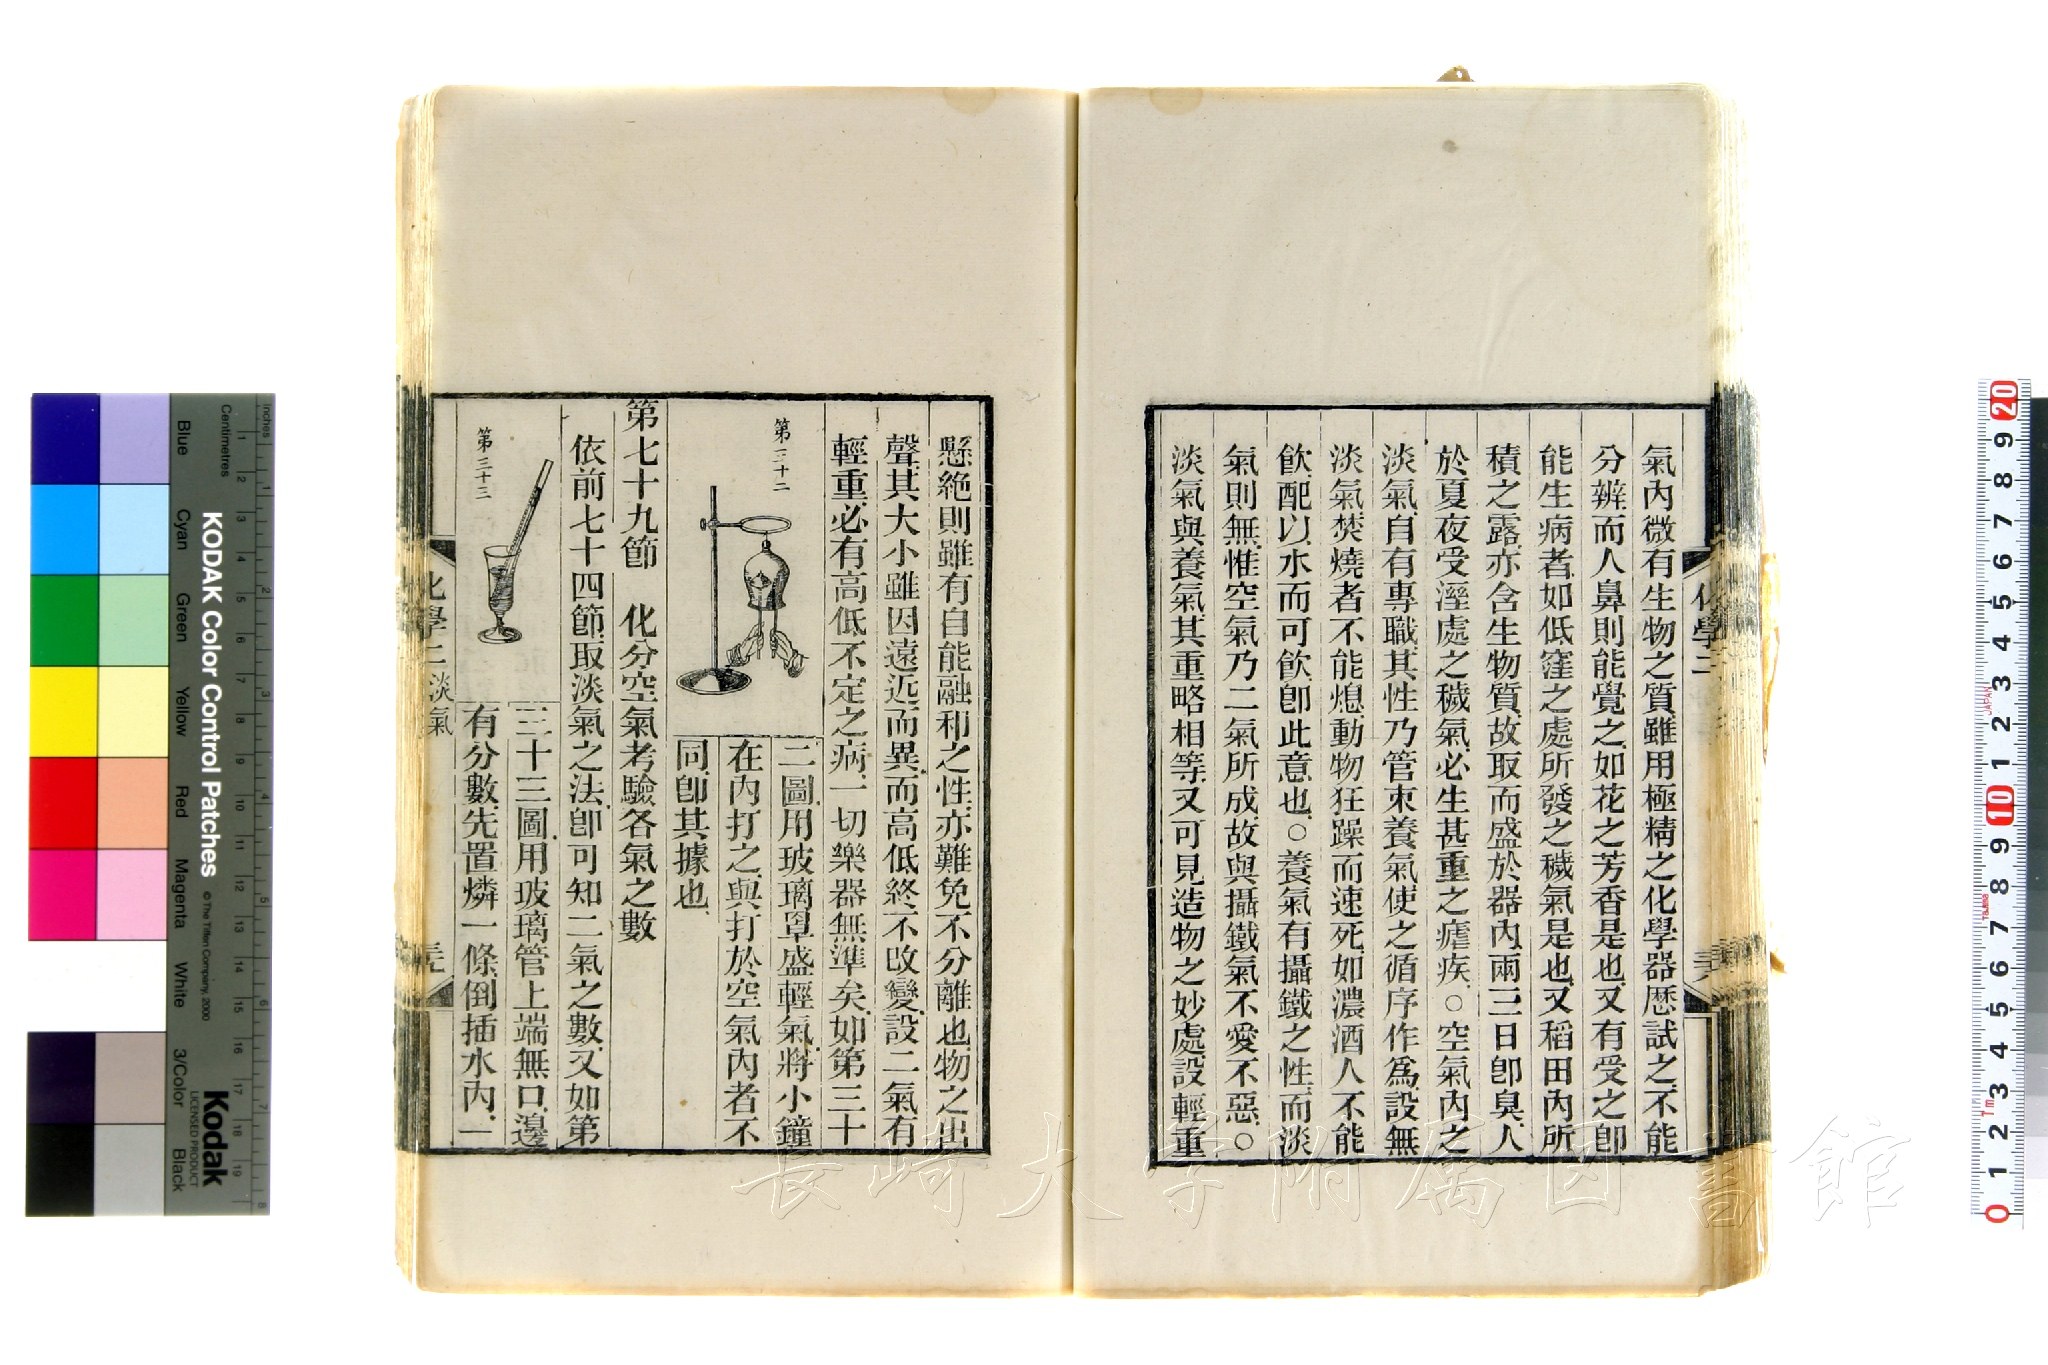 氣內微有生物之質雖用極精之化學器歷試之不能
分辨而人鼻則能覺之如花之芳香是也又有受之卽
能生病者如低窪之處所發之穢氣是也又稻田內所
積之露亦含生物質故取而盛於器內兩三日卽臭人
於夏夜受溼處之穢氣必生甚重之瘧疾○空氣內之
淡氣自有專職其性乃管束養氣使之循序作爲設無
淡氣焚燒者不能熄動物狂躁而速死如濃酒人不能
飮配以水而可飮卽此意也○養氣有攝鐵之性而淡
氣則無惟空氣乃二氣所成故與攝鐵氣不愛不惡○
淡氣與養氣其重略相等又可見造物之妙處設輕重
懸絶則雖有自能融和之性亦難免不分離也物之出
聲其大小雖因遠近而異而高低終不改變設二氣有
輕重必有高低不定之病一切樂器無準矣如第三十
第三十二
二圖用玻璃罩盛輕氣將小鐘
在內打之與打於空氣內者不
同卽其據也
第七十九節 化分空氣考驗各氣之數
依前七十四節取淡氣之法卽可知二氣之數又如第
第三十三
三十三圖用玻璃管上端無口邊
有分數先置燐一條倒插水內一
化學二 淡氣
長崎大学附属図書館
KODAK Color Control Patches
© The Tiffen Company, 2000
Kodak
LICENSED PRODUCT
Inches
Centimetres
Blue
Cyan
Green
Yellow
Red
Magenta
White
3/Color
Black
1 2 3 4 5 6 7 8
1 2 3 4 5 6 7 8 9 10 11 12 13 14 15 16 17 18 19
20 9 8 7 6 5 4 3 2 1 10 9 8 7 6 5 4 3 2 1 0
JAPAN